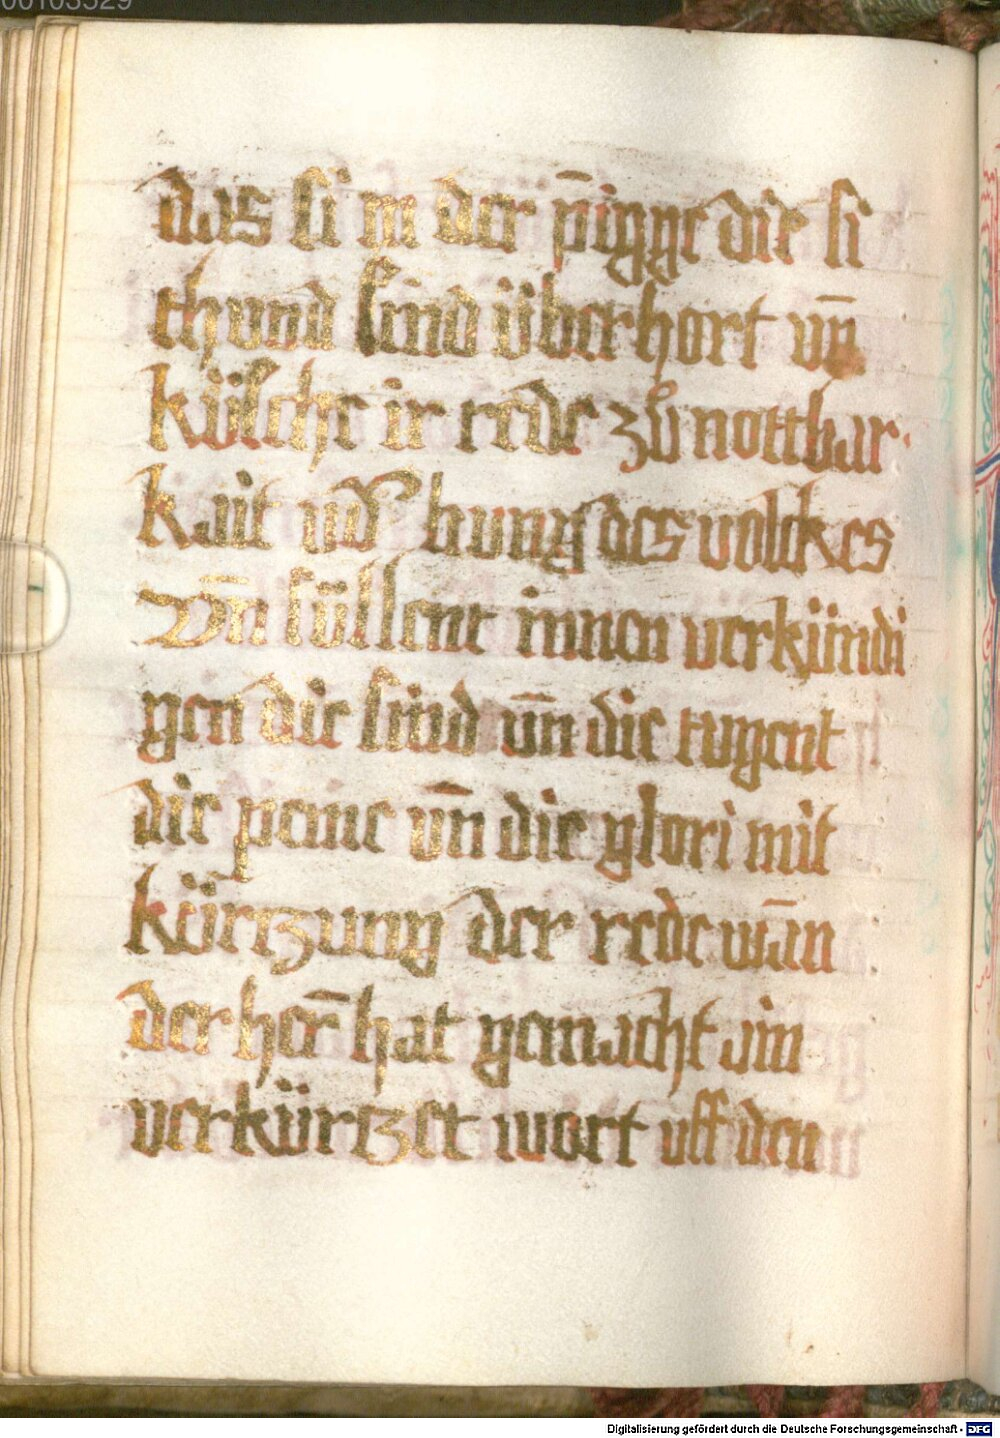 00103529
das si in der p̄igge die si
thund sind überhort vn̄
küsche ir rede zů nottbar
kait vd' hung des volckes
Vn̄ süllent innen verkündi
gen die sünd vn̄ die tugent
die peine vn̄ die glori mit
kürtzung der rede wān
der her̄ hat gemacht ain
verkürtzet wort uff den
Digitalisierung gefördert durch die Deutsche Forschungsgemeinschaft - DFG